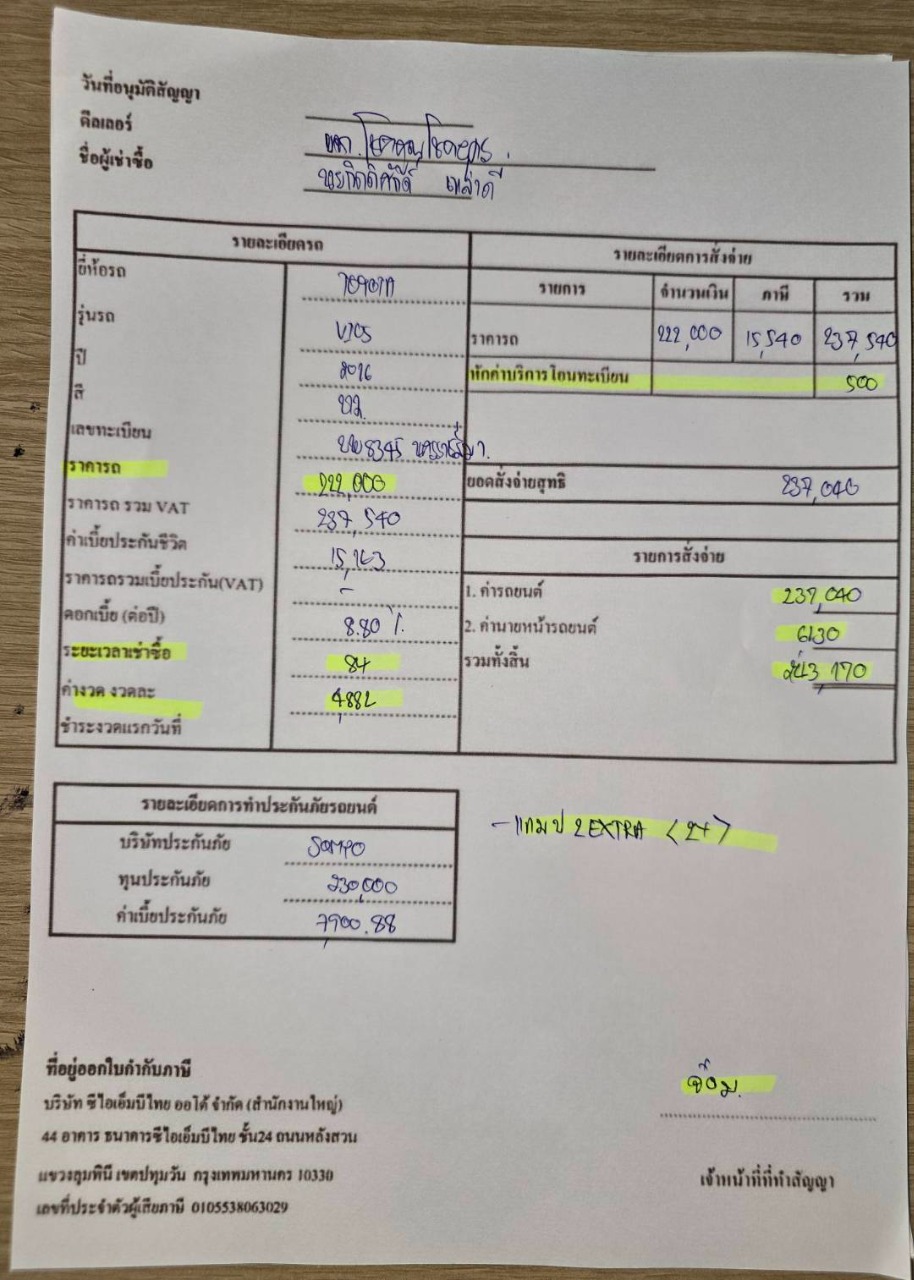 วันที่อนุมัติสัญญา
ดีลเลอร์
ชื่อผู้เช่าซื้อ
รายละเอียดรถ
ยี่ห้อรถ TOYOTA
รุ่นรถ VIOS
ปี 2016
สี
เลขทะเบียน 8345
ราคารถ 222,000
ราคารถ รวม VAT 237,540
ค่าเบี้ยประกันชีวิต 15,163
ราคารถรวมเบี้ยประกัน(VAT) -
ดอกเบี้ย (ต่อปี) 8.80 %
ระยะเวลาเช่าซื้อ 84
ค่างวด งวดละ 4,882
ชำระงวดแรกวันที่
รายละเอียดการสั่งจ่าย
รายการ จำนวนเงิน ภาษี รวม
ราคารถ 222,000 15,540 237,540
หักค่าบริการโอนทะเบียน 500
ยอดสั่งจ่ายสุทธิ 237,040
รายการสั่งจ่าย
1. ค่ารถยนต์ 237,040
2. ค่านายหน้ารถยนต์ 6130
รวมทั้งสิ้น 243,170
รายละเอียดการทำประกันภัยรถยนต์
บริษัทประกันภัย SOMPO
ทุนประกันภัย 230,000
ค่าเบี้ยประกันภัย 7,900.88
- แถม ป 2 EXTRA (2+)
ที่อยู่ออกใบกำกับภาษี
บริษัท ซีไอเอ็มบีไทย ออโต้ จำกัด (สำนักงานใหญ่)
44 อาคาร ธนาคารซีไอเอ็มบีไทย ชั้น24 ถนนหลังสวน
แขวงลุมพินี เขตปทุมวัน กรุงเทพมหานคร 10330
เลขที่ประจำตัวผู้เสียภาษี 0105538063029
เจ้าหน้าที่ที่ทำสัญญา